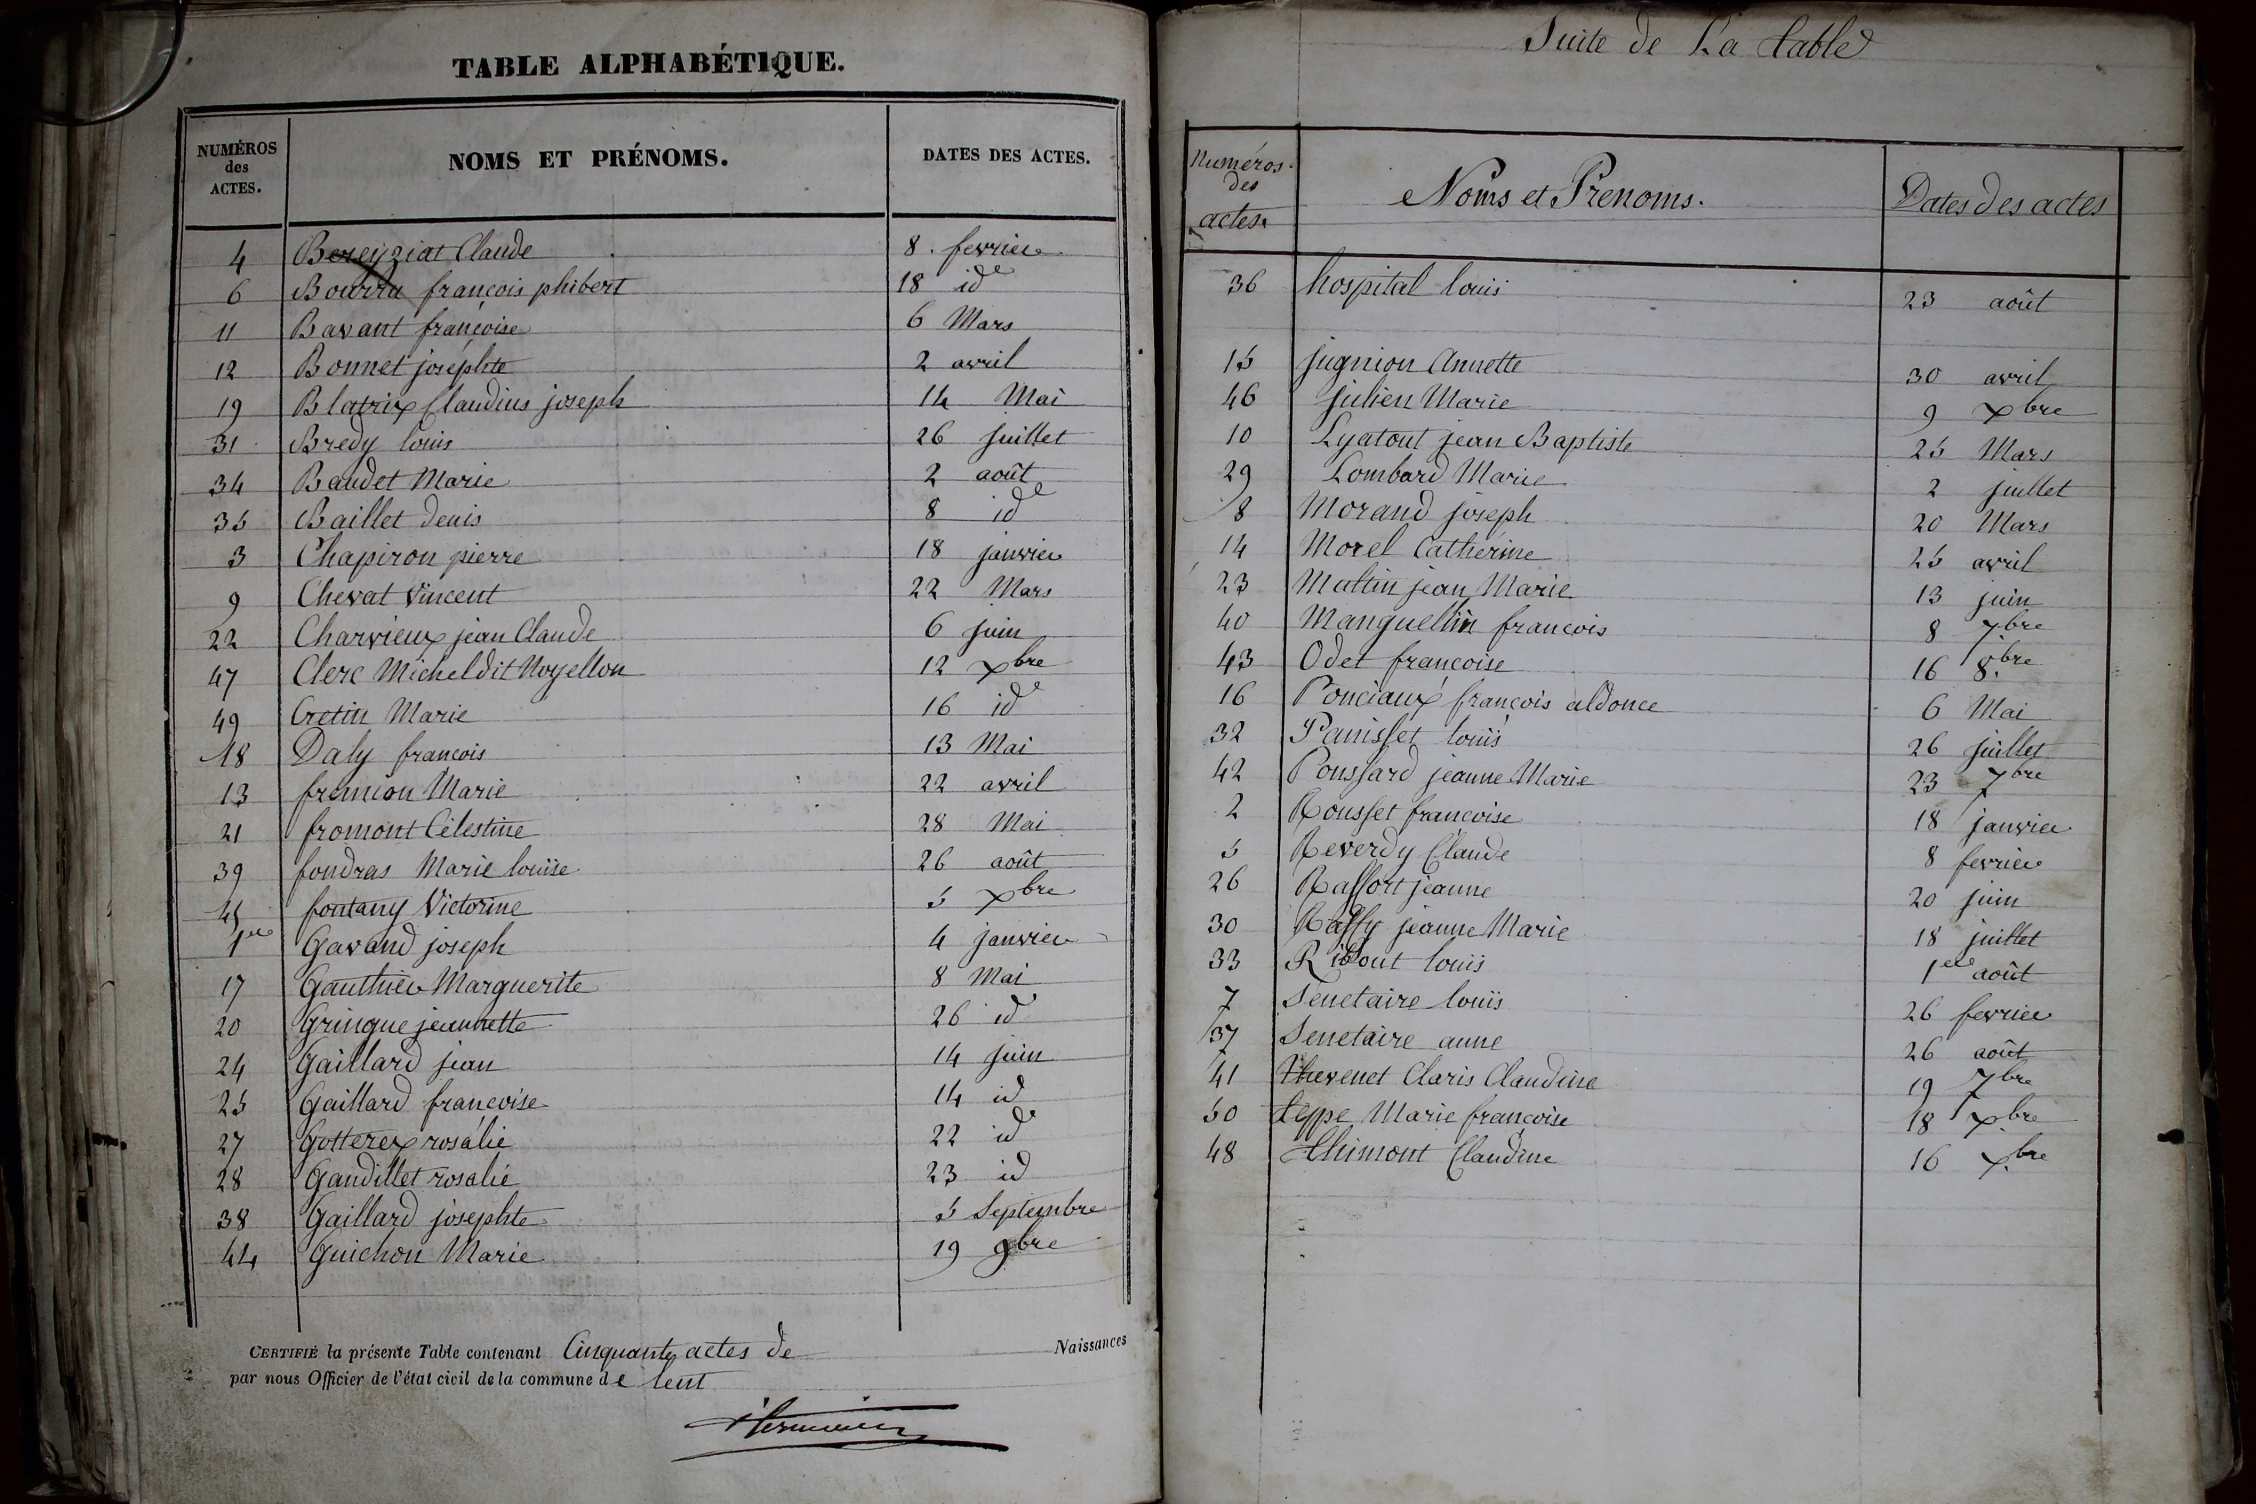 TABLE ALPHABÉTIQUE.
NUMÉROS des ACTES. NOMS ET PRÉNOMS. DATES DES ACTES.
4 Bereyziat Claude 8 fevrier
6 Bourru françois phibert 18 id^e
11 Bavant françoise 6 Mars
12 Bonnet joséphte 2 avril
19 Blatrix Claudius joseph 14 Mai
31 Bredy louis 26 juillet
34 Baudet Marie 2 août
35 Baillet denis 8 id^e
3 Chapiron pierre 18 janvier
9 Chevat Vincent 22 Mars
22 Charvieux jean Claude 6 juin
47 Clerc Michel dit Noyellon 12 xbre
49 Cretin Marie 16 id^e
18 Daly françois 13 Mai
13 fremion Marie 22 avril
21 fromont Célestine 28 Mai
39 fondras Marie louise 26 août
45 fontany Victorine 5 xbre
1er Gavand joseph 4 janvier
17 Gauthier Marguerite 8 Mai
20 Gringue jeannette 26 id
24 Gaillard jean 14 juin
25 Gaillard françoise 14 id
27 Gotterex rosalie 22 id^e
28 Gaudillet rosalie 23 id
38 Gaillard josephte 5 Septembre
44 Guichon Marie 19 9bre
CERTIFIÉ la présente Table contenant Cinquante actes de Naissances
par nous Officier de l'état civil de la commune de lent
Suite de La table
Numéros des actes. Noms et Prenoms. Dates des actes
36 hospital louis 23 août
15 jugnion Annette 30 avril
46 julien Marie 9 xbre
10 Lyatout jean Baptiste 25 Mars
29 Lombard Marie 2 juillet
8 Morand joseph 20 Mars
14 Morel Catherine 25 avril
23 Mattin jean Marie 13 juin
40 Manguellin françois 8 7bre
43 Odet françoise 16 8bre
16 Ponciaux françois aldonce 6 Mai
32 Panisset louis 26 juillet
42 Poussard jeanne Marie 23 7bre
2 Rousset françoise 18 janvier
5 Reverdy Claude 8 fevrier
26 Raffort jeanne 20 juin
30 Raffy jeanne Marie 18 juillet
33 Ribout louis 1er août
7 Senetaire louis 26 fevrier
37 Senetaire anne 26 août
41 thevenet Claris Claudine 19 7bre
50 teppe Marie françoise 18 xbre
48 thimont Claudine 16 xbre